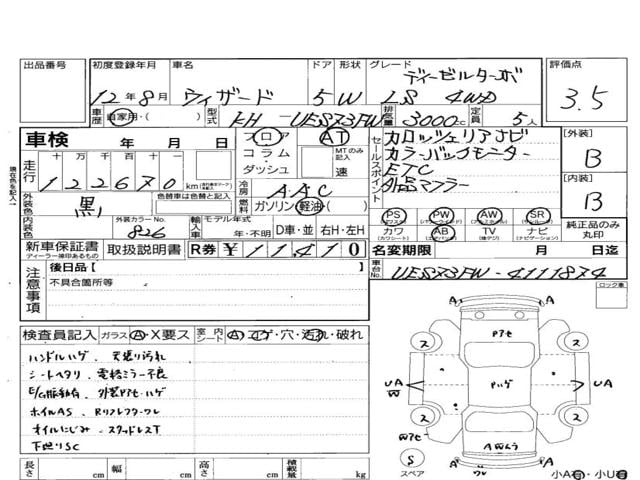 出品番号 初度登録年月 車名 ドア 形状 グレード 評価点
ディーゼルターボ
12年8月 ウィザード 5 W LS 4WD 3.5
車歴 自家用・( ) 型式 KH - UES73FW 排気量 3000cc 定員 5人
車検 年 月 日 フロア AT セールスポイント カロッツェリアナビ 【外装】
コラム MTのみ記入 カラーバックモニター B
走行 十万 万 千 百 十 一 ダッシュ 速 ETC 【内装】
122670 km 冷房 AAC 社外品マフラー B
外装色 黒 色替車は色替と記入 燃料 ガソリン 軽油 PS PW AW SR 純正品のみ丸印
内装色 外装カラーNo. 826 輸入車 モデル年式 年・不明 D車・並 右H・左H カワ AB TV ナビ
新車保証書 取扱説明書 R券 ¥11410 名変期限 月 日迄
ディーラー捺印あるもの
注意事項 後日品【 】 車台No. UES73FW-4111874
不具合箇所等 ロック車
検査員記入 ガラス A・X要ス 室内シート A・コゲ・穴・汚れ・破れ
ハンドルハゲ . 天張り汚れ
シートヘタリ . 電格ミラー不良
E/G振動有 . 外装Pアセ・ハゲ
ホイルAS . Rリフレクターワレ
オイルにじみ . スタッドレスT
下廻りSC
Pアセ
ス ス
UA W Pハゲ UA W
ス ス
S スペア
ワレ 小A有・小U有
長さ cm 幅 cm 高さ cm 積載量 kg